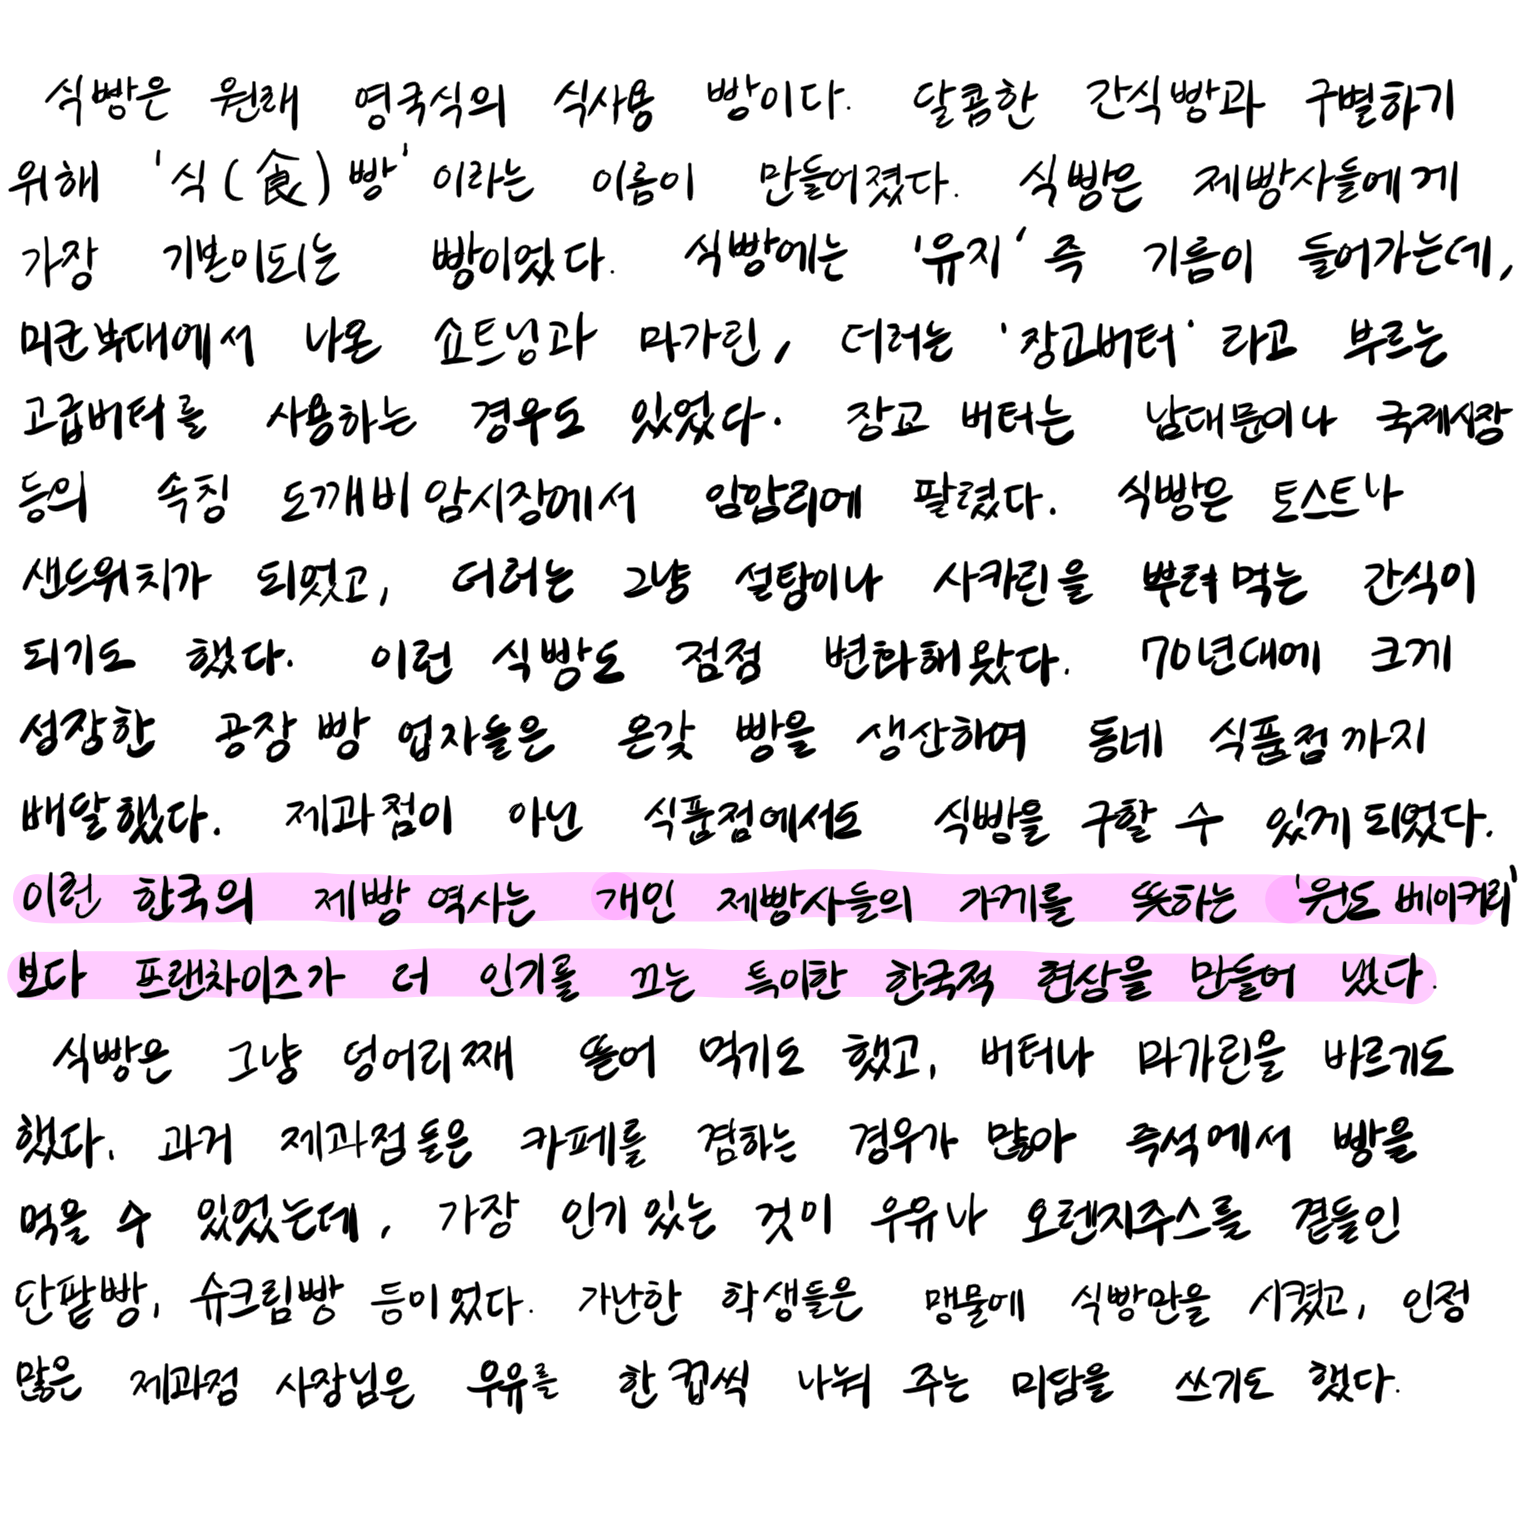 식빵은 원래 영국식의 식사용 빵이다. 달콤한 간식빵과 구별하기
위해 '식(食)빵'이라는 이름이 만들어졌다. 식빵은 제빵사들에게
가장 기본이되는 빵이었다. 식빵에는 '유지' 즉 기름이 들어가는데,
미군부대에서 나온 쇼트닝과 마가린, 더러는 '장교버터'라고 부르는
고급버터를 사용하는 경우도 있었다. 장교 버터는 남대문이나 국제시장
등의 속칭 도깨비암시장에서 암암리에 팔렸다. 식빵은 토스트나
샌드위치가 되었고, 더러는 그냥 설탕이나 사카린을 뿌려먹는 간식이
되기도 했다. 이런 식빵도 점점 변화해왔다. 70년대에 크게
성장한 공장 빵 업자들은 온갖 빵을 생산하여 동네 식품점까지
배달했다. 제과점이 아닌 식품점에서도 식빵을 구할 수 있게 되었다.
이런 한국의 제빵역사는 개인 제빵사들의 가게를 뜻하는 '윈도 베이커리'
보다 프랜차이즈가 더 인기를 끄는 특이한 한국적 현상을 만들어 냈다.
식빵은 그냥 덩어리째 뜯어 먹기도 했고, 버터나 마가린을 바르기도
했다. 과거 제과점들은 카페를 겸하는 경우가 많아 즉석에서 빵을
먹을 수 있었는데, 가장 인기있는 것이 우유나 오렌지주스를 곁들인
단팥빵, 슈크림빵 등이었다. 가난한 학생들은 맹물에 식빵만을 시켰고, 인정
많은 제과점 사장님은 우유를 한컵씩 나눠 주는 미담을 쓰기도 했다.